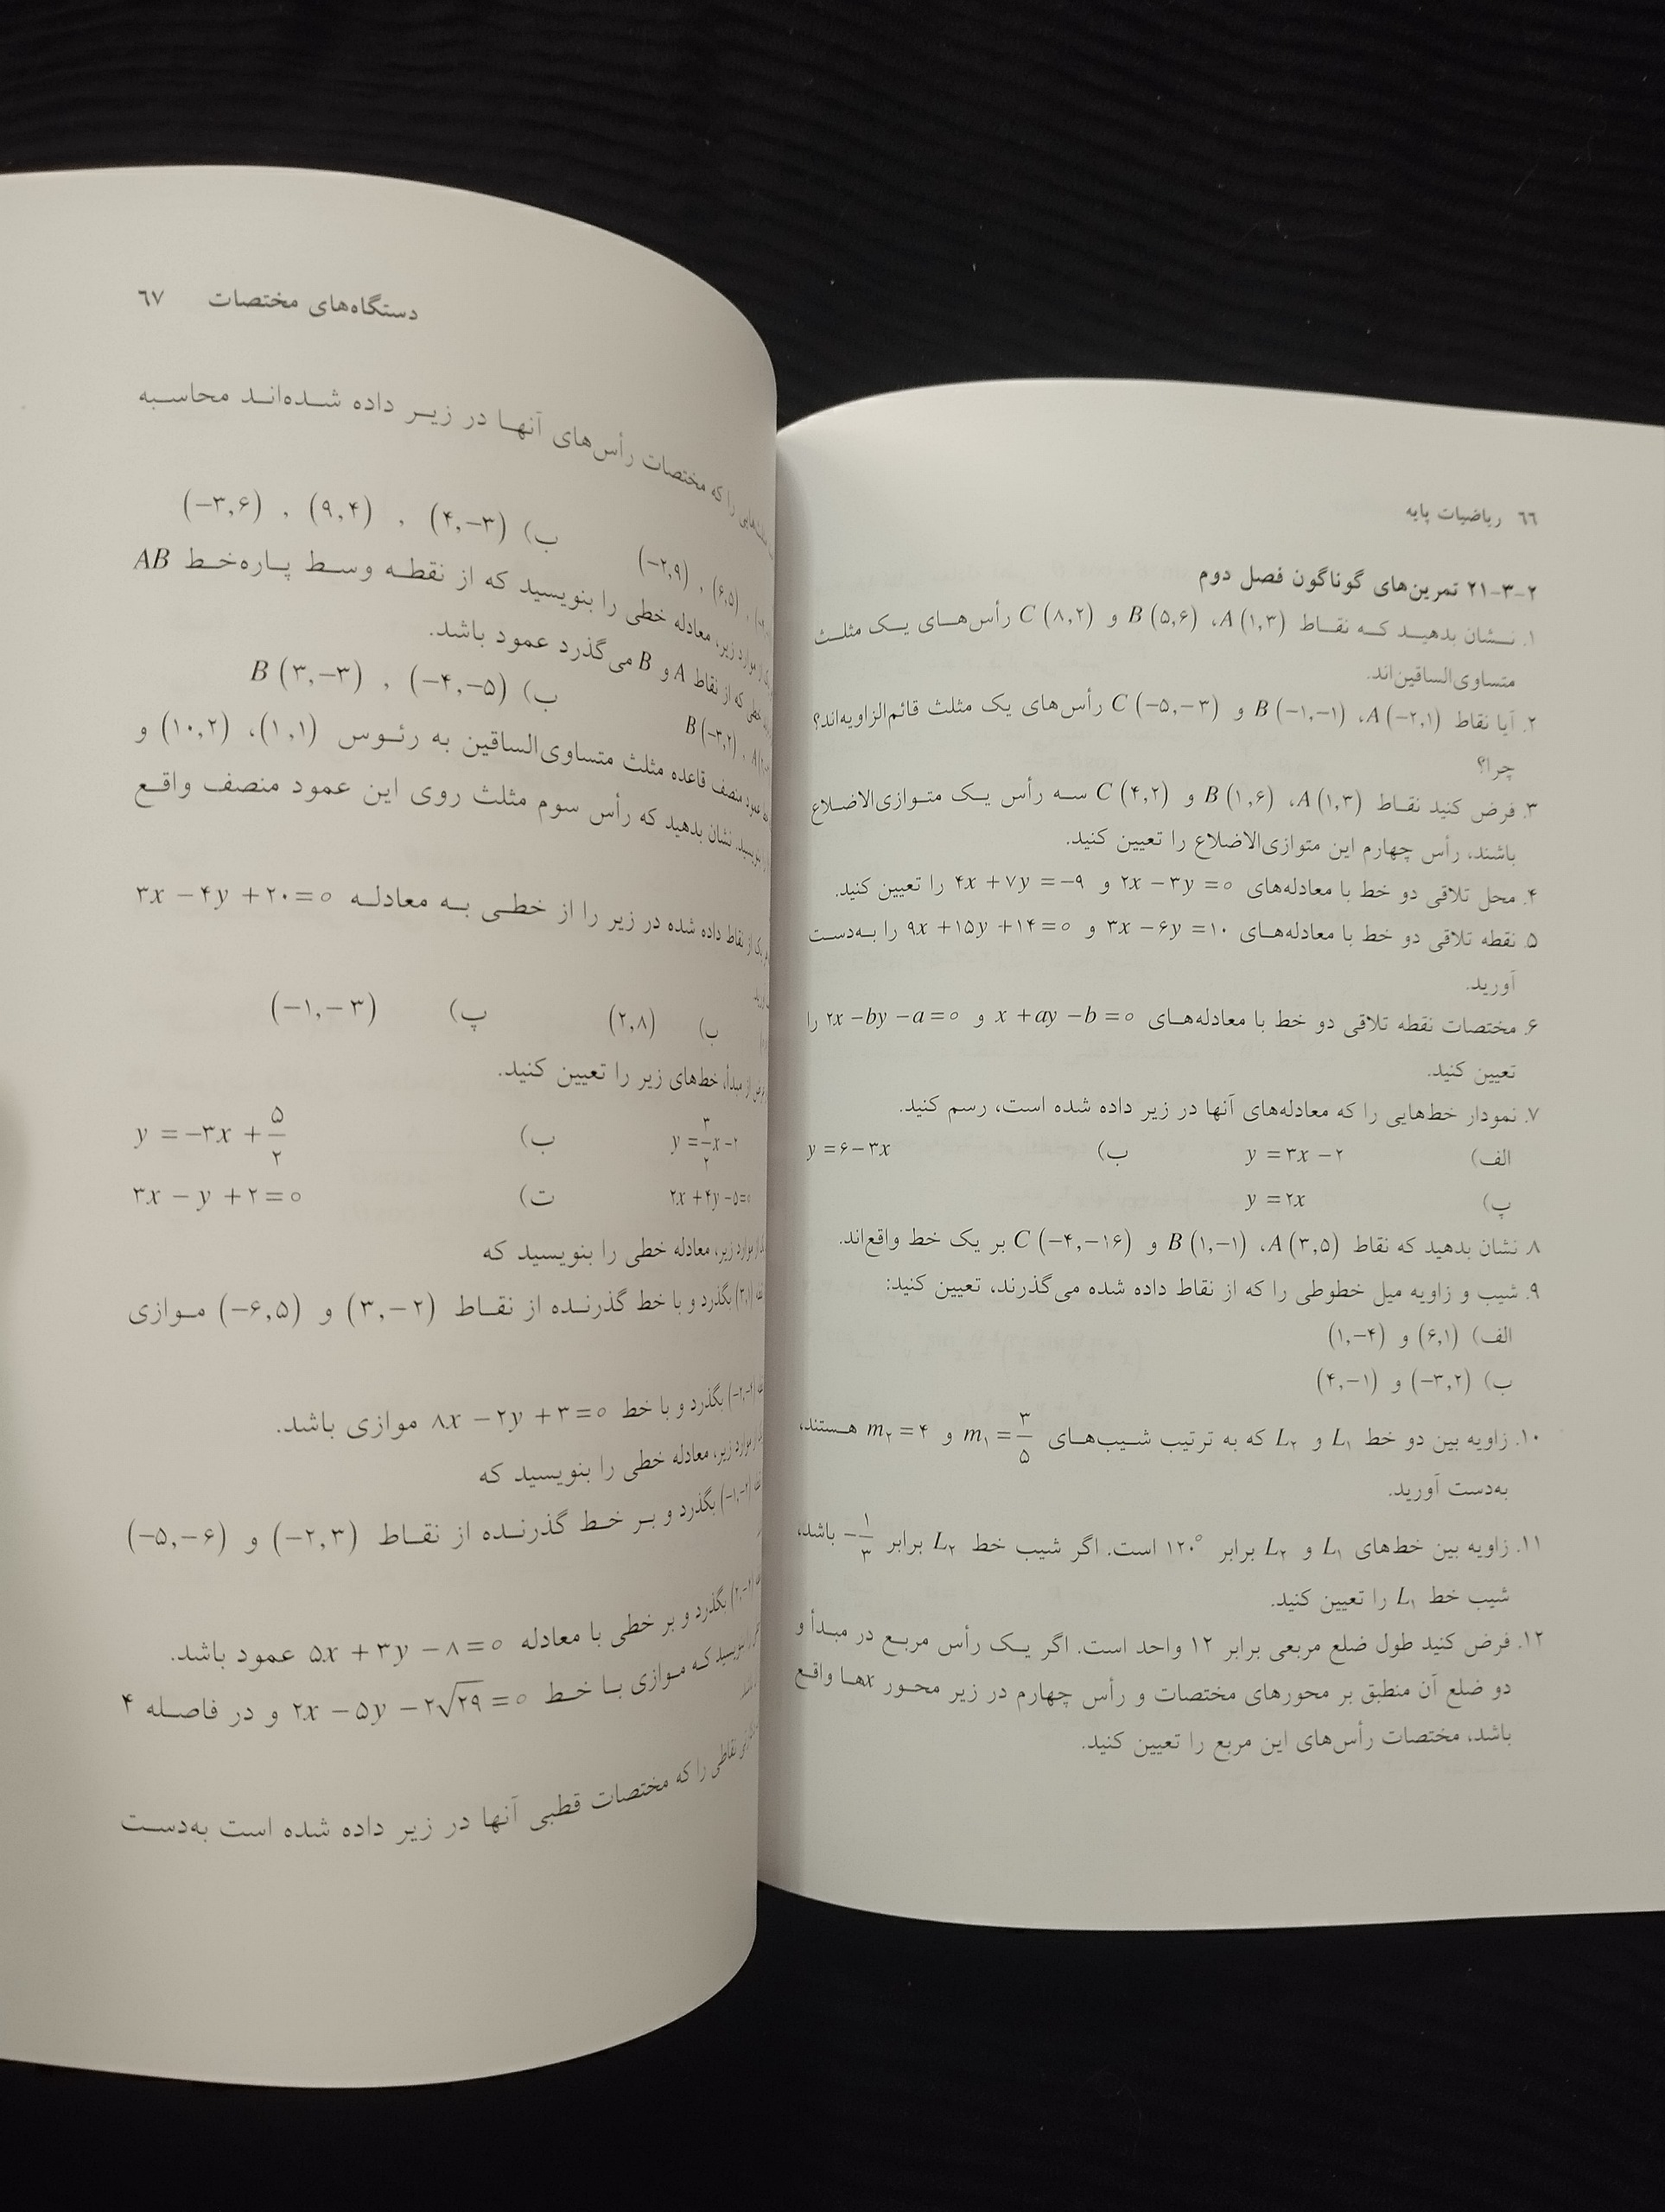 ٦٦ ریاضیات پایه
۲-۳-۲۱ تمرین‌های گوناگون فصل دوم
۱. نشان بدهید که نقاط A(۱,۳)، B(۵,۶) و C(۸,۲) رأس‌های یک مثلث
متساوی‌الساقین‌اند.
۲. آیا نقاط A(−۲,۱)، B(−۱,−۱) و C(−۵,−۳) رأس‌های یک مثلث قائم‌الزاویه‌اند؟
چرا؟
۳. فرض کنید نقاط A(۱,۳)، B(۱,۶) و C(۴,۲) سه رأس یک متوازی‌الاضلاع
باشند، رأس چهارم این متوازی‌الاضلاع را تعیین کنید.
۴. محل تلاقی دو خط با معادله‌های ۲x − ۳y = ۰ و ۴x + ۷y = −۹ را تعیین کنید.
۵. نقطه تلاقی دو خط با معادله‌های ۳x − ۶y = ۱۰ و ۹x + ۱۵y + ۱۴ = ۰ را به‌دست
آورید.
۶. مختصات نقطه تلاقی دو خط با معادله‌های x + ay − b = ۰ و ۲x − by − a = ۰ را
تعیین کنید.
۷. نمودار خط‌هایی را که معادله‌های آنها در زیر داده شده است، رسم کنید.
الف) y = ۳x − ۲ ب) y = ۶ − ۳x
پ) y = ۲x
۸. نشان بدهید که نقاط A(۳,۵)، B(۱,−۱) و C(−۴,−۱۶) بر یک خط واقع‌اند.
۹. شیب و زاویه میل خطوطی را که از نقاط داده شده می‌گذرند، تعیین کنید:
الف) (۶,۱) و (۱,−۴)
ب) (−۳,۲) و (۴,−۱)
۱۰. زاویه بین دو خط L₁ و L₂ که به ترتیب شیب‌های m₁ = ۳/۵ و m₂ = ۴ هستند،
به‌دست آورید.
۱۱. زاویه بین خط‌های L₁ و L₂ برابر ۱۲۰° است. اگر شیب خط L₂ برابر −۱/۳ باشد،
شیب خط L₁ را تعیین کنید.
۱۲. فرض کنید طول ضلع مربعی برابر ۱۲ واحد است. اگر یک رأس مربع در مبدأ و
دو ضلع آن منطبق بر محورهای مختصات و رأس چهارم در زیر محور xها واقع
باشد، مختصات رأس‌های این مربع را تعیین کنید.
دستگاه‌های مختصات ٦٧
را که مختصات رأس‌های آنها در زیر داده شده‌اند محاسبه
(۶,۵) , (−۲,۹) ب) (۴,−۳) , (۹,۴) , (−۳,۶)
موارد زیر، معادله خطی را بنویسید که از نقطه وسط پاره‌خط AB
خطی که از نقاط A و B می‌گذرد عمود باشد.
B(−۳,۲) ب) (−۴,−۵) , B(۳,−۳)
عمود منصف قاعده مثلث متساوی‌الساقین به رئوس (۱,۱)، (۱۰,۲) و
بنویسید. نشان بدهید که رأس سوم مثلث روی این عمود منصف واقع
از نقاط داده شده در زیر را از خطی به معادله ۳x − ۴y + ۲۰ = ۰
ب) (۲,۸) پ) (−۱,−۳)
از مبدأ، خط‌های زیر را تعیین کنید.
y = ۳/۲x − ۲ ب) y = −۳x + ۵/۲
۲x + ۴y − ۵ = ۰ ت) ۳x − y + ۲ = ۰
موارد زیر، معادله خطی را بنویسید که
بگذرد و با خط گذرنده از نقاط (۳,−۲) و (−۶,۵) موازی
(−۲,−۴) بگذرد و با خط ۸x − ۲y + ۳ = ۰ موازی باشد.
موارد زیر، معادله خطی را بنویسید که
(−۱,−۲) بگذرد و بر خط گذرنده از نقاط (−۲,۳) و (−۵,−۶)
(۲,−۴) بگذرد و بر خطی با معادله ۵x + ۳y − ۸ = ۰ عمود باشد.
بنویسید که موازی با خط ۲x − ۵y − ۲√۲۹ = ۰ و در فاصله ۴
نقاطی را که مختصات قطبی آنها در زیر داده شده است به‌دست